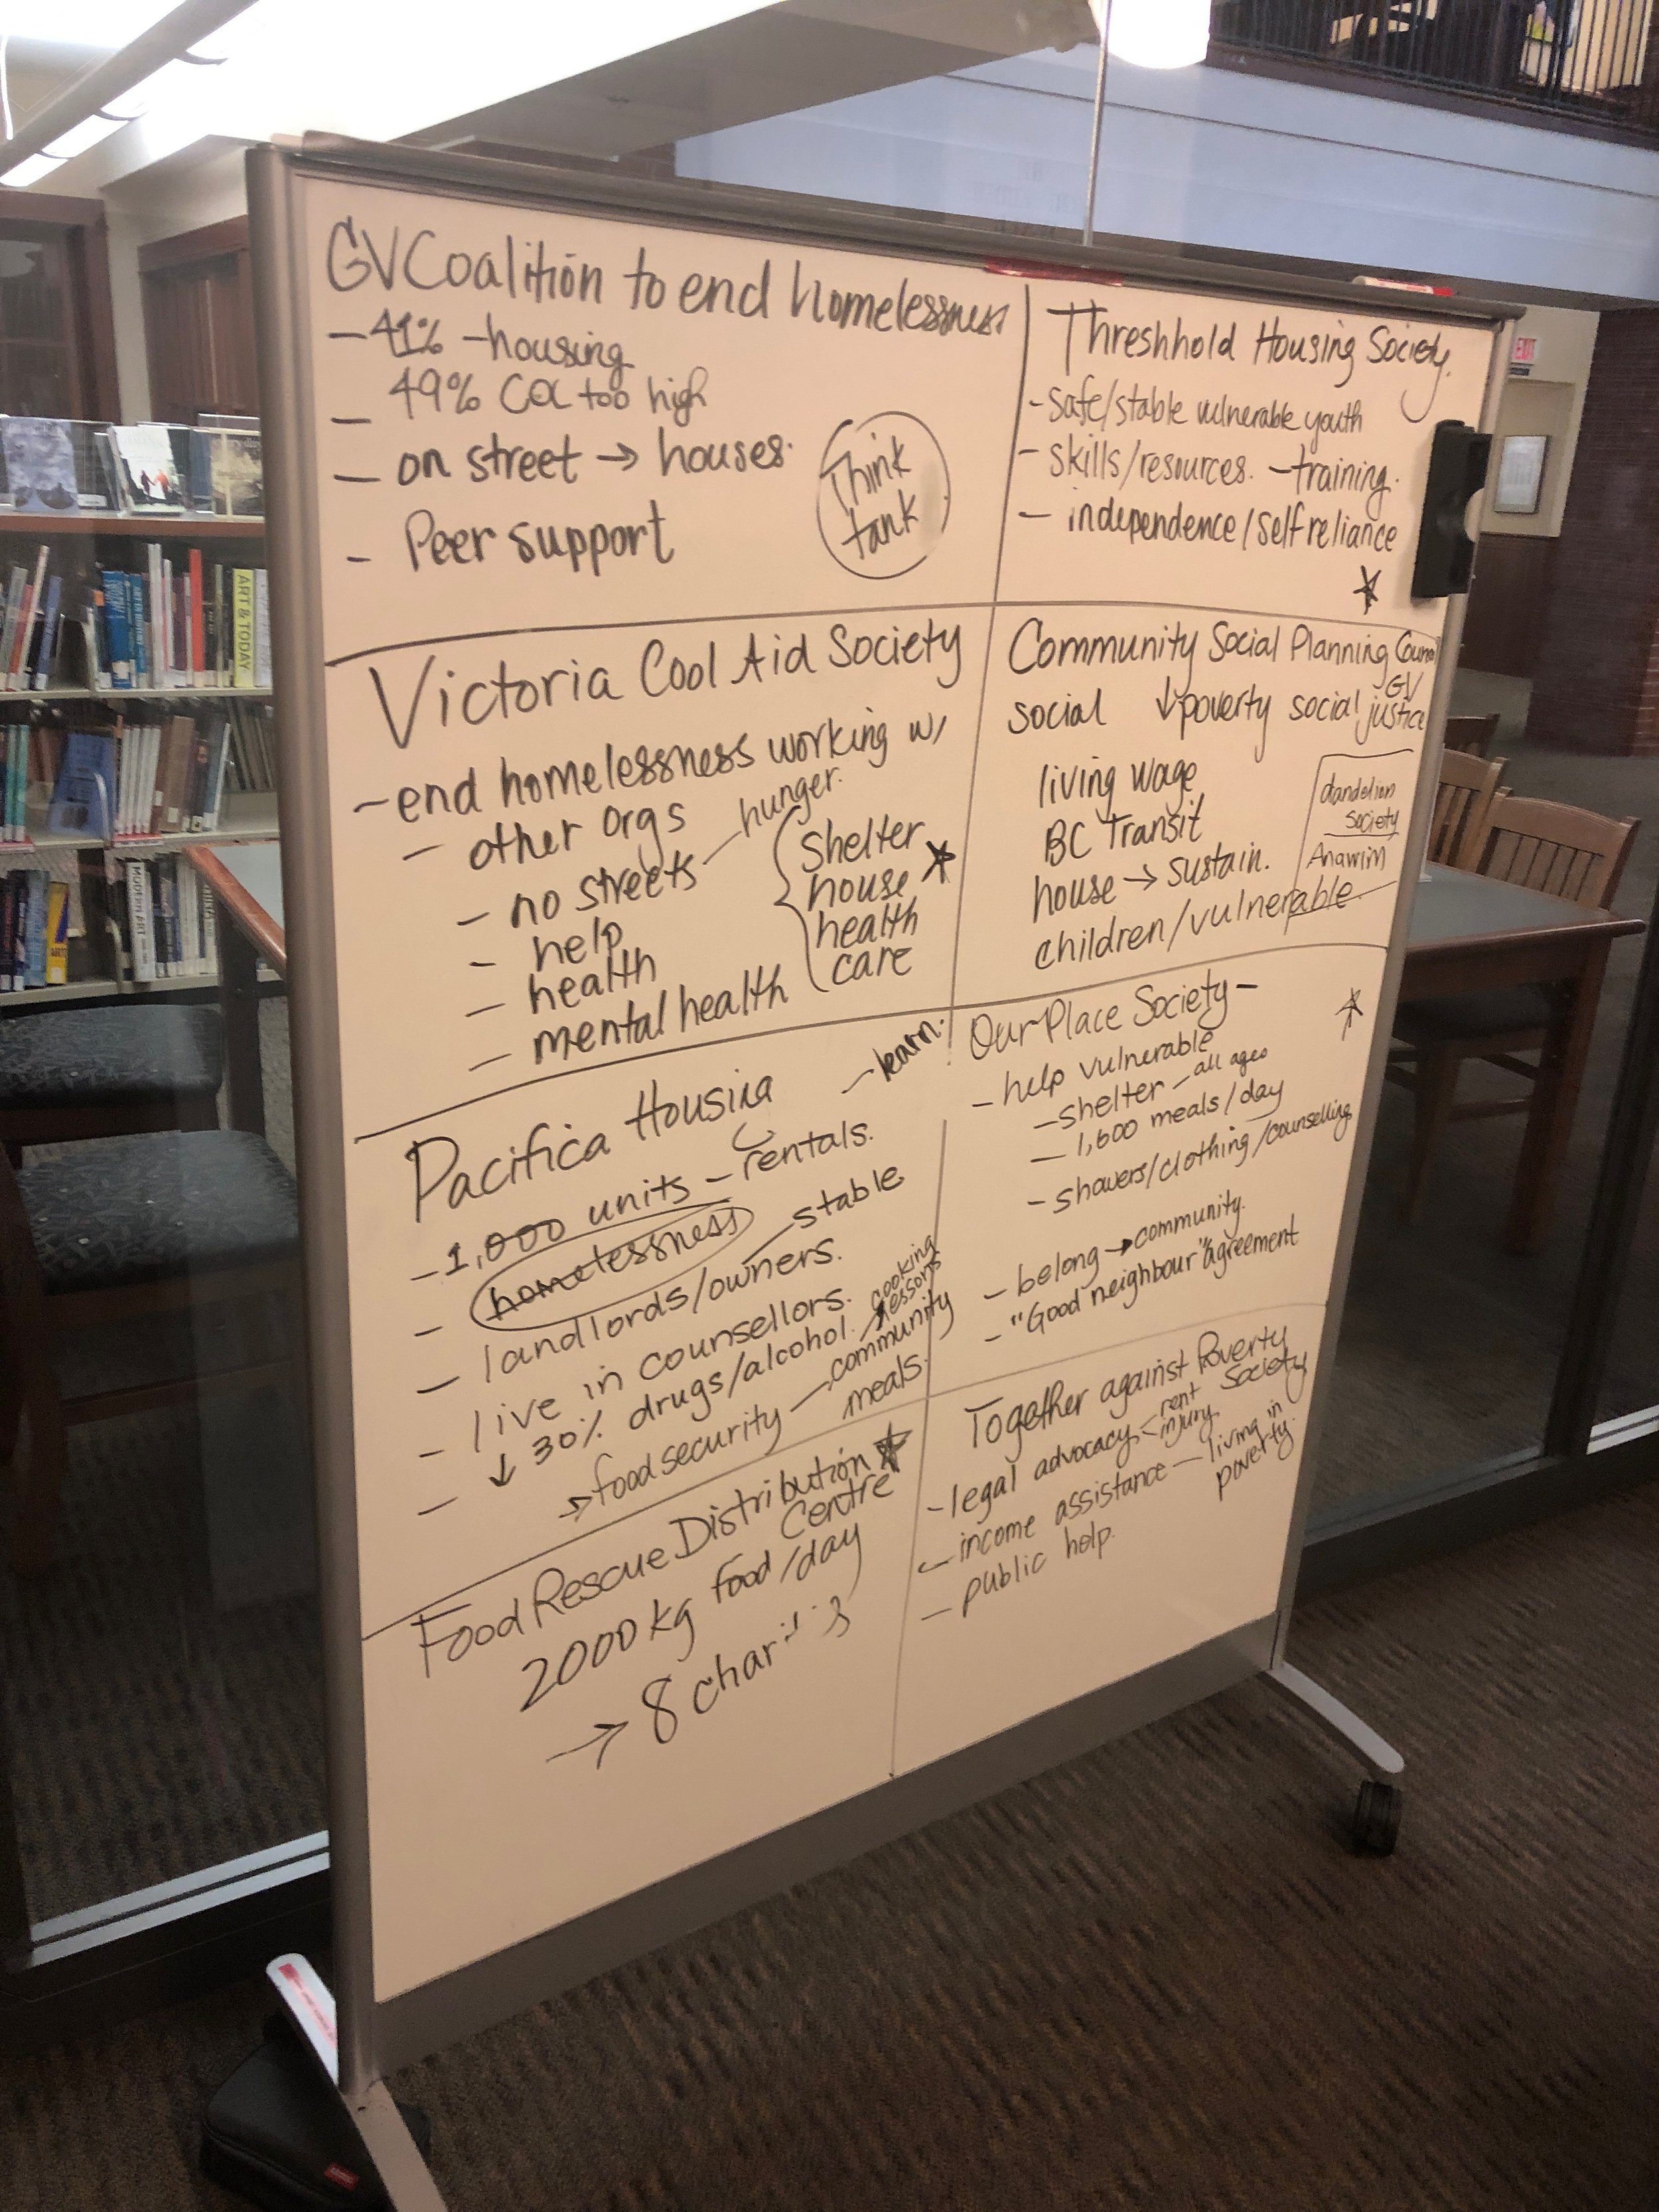 GV Coalition to end homelessness
- 41% - housing
- 49% too high
- on street → houses.
- Peer support
Think
tank
Threshhold Housing Society.
- safe/stable vulnerable youth
- skills/resources. - training.
- independence/self reliance
Victoria Cool Aid Society
- end homelessness working w/
- other orgs
- no streets - hunger.
- help
- health
- mental health
shelter
house
health
care
Community Social Planning Council
GV
social ↓poverty social justice
living wage
BC Transit
house → sustain.
children/vulnerable
dandelion
society
Anawim
Pacifica Housing - learn.
- 1,000 units - rentals.
- homelessness
- landlords/owners. - stable
- live in counsellors.
- ↓ 30% drugs/alcohol.
cooking
lessons
→ food security - community
meals.
Our Place Society -
- help vulnerable
- shelter - all ages
- 1,600 meals/day
- showers/clothing/counselling
- belong → community.
- "Good neighbour" agreement
Food Rescue Distribution
Centre
2000 kg food/day
→ 8 char
Together against Poverty
Society
- legal advocacy < rent
injury
- income assistance - living in
poverty.
- public help.
ART & TODAY
MODERN ART
EXIT